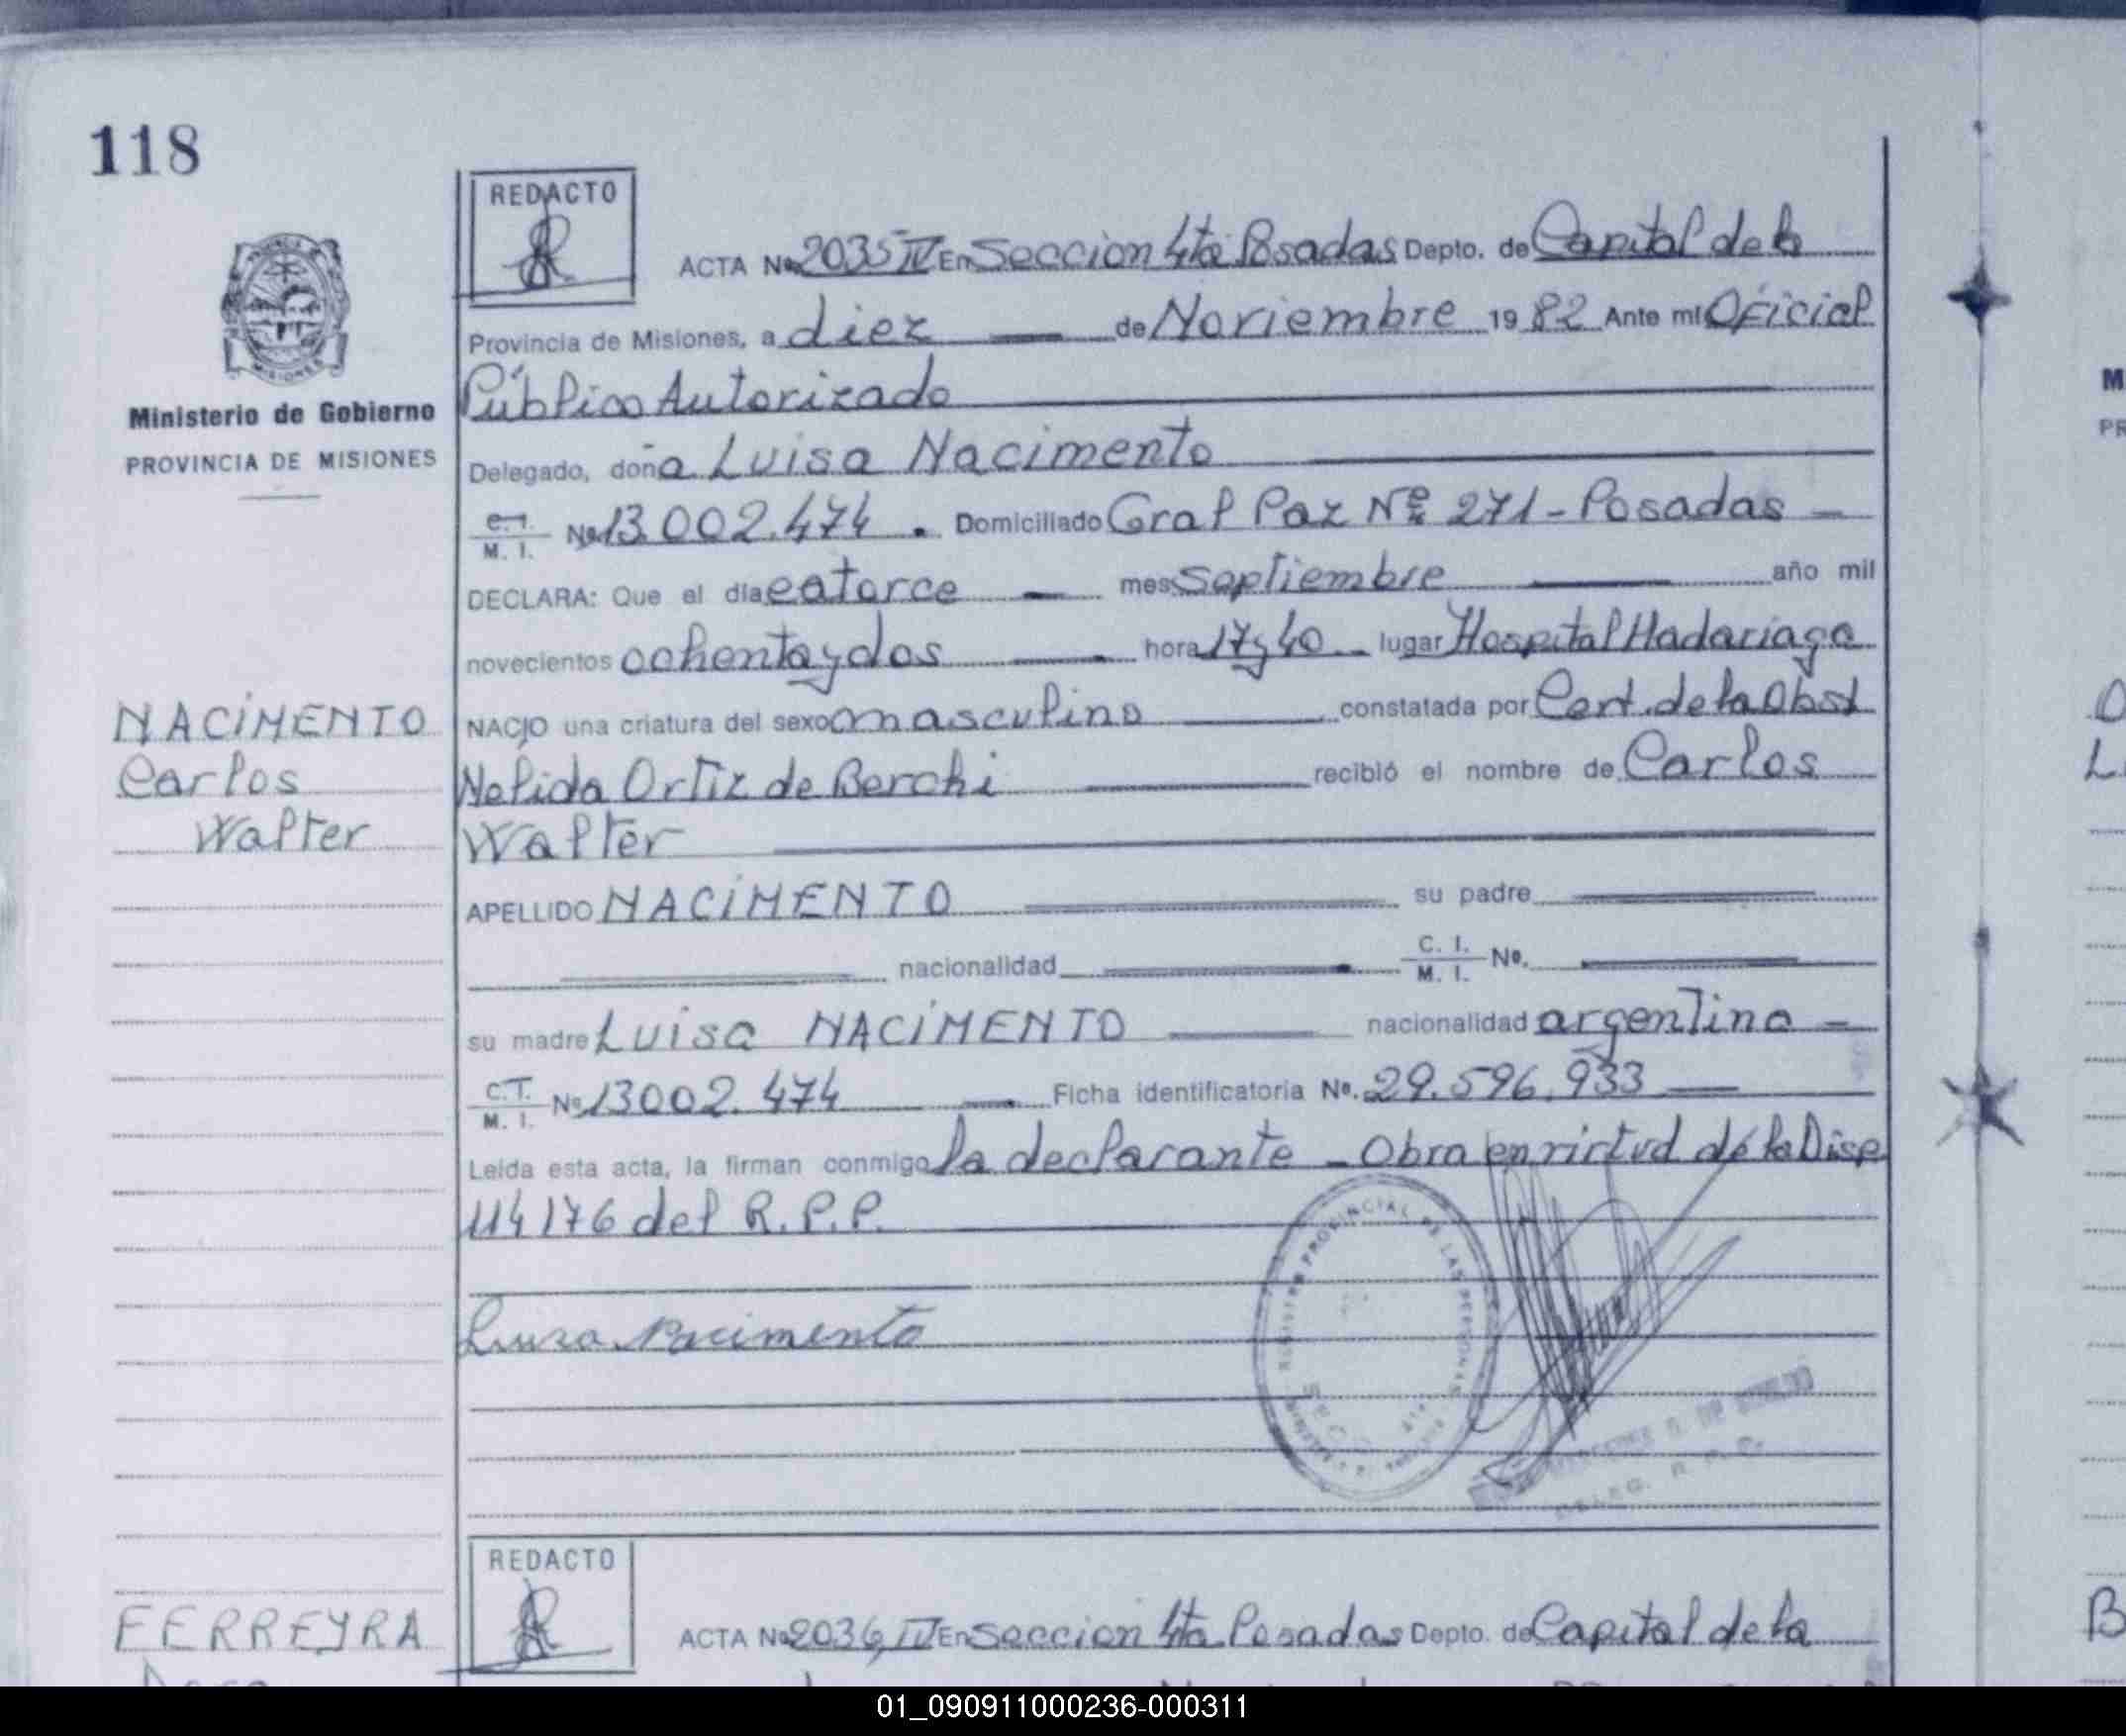 118
REDACTO
ACTA Nº 2035 IV En Seccion 4ta Posadas Depto. de Capital de la
Provincia de Misiones, a diez de Noviembre 1982 Ante mi Oficial
Público Autorizado
Ministerio de Gobierno
PROVINCIA DE MISIONES
Delegado, doña Luisa Nacimento
C.I.
M. I. Nº 13.002.474. Domiciliado Gral Paz Nº 271 - Posadas -
DECLARA: Que el día catorce mes septiembre año mil
novecientos ochenta y dos hora 17,40 lugar Hospital Madariaga
NACIMENTO
Carlos
Walter
NACIO una criatura del sexo masculino constatada por Cert. de la Obst
Nelida Ortiz de Berchi recibió el nombre de Carlos
Walter
APELLIDO NACIMENTO su padre
nacionalidad C. I.
M. I. Nº.
su madre Luisa NACIMENTO nacionalidad argentina -
C.I.
M. I. Nº 13002.474 Ficha identificatoria Nº. 29.596.933
Leída esta acta, la firman conmigo la declarante - Obra en virtud de la Disp
114176 del R.P.P.
Luisa Nacimento
REGISTRO PROVINCIAL DE LAS PERSONAS
REDACTO
FERREYRA
ACTA Nº 2036, IV En Seccion 4ta Posadas Depto. de Capital de la
01_090911000236-000311